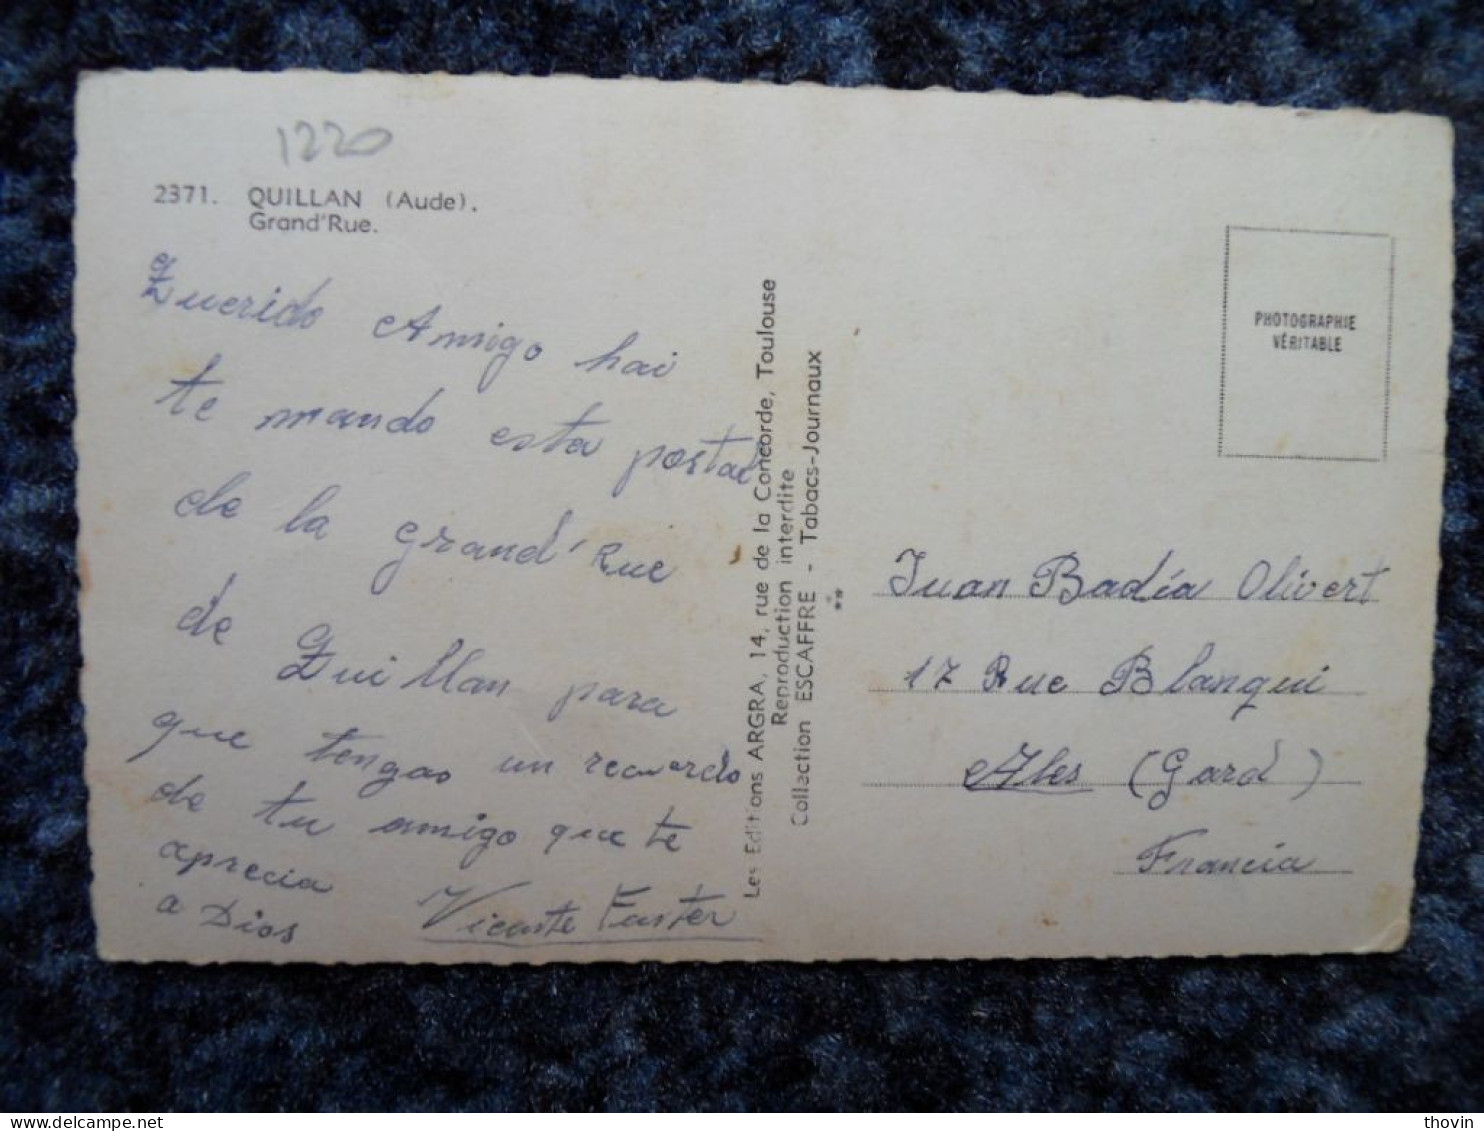 1220
2371. QUILLAN (Aude).
Grand'Rue.
Querido Amigo hai
te mando esta postal
de la grand'Rue
de Quillan para
que tengas un recuerdo
de tu amigo que te
aprecia
a Dios Vicente Fuster
Les Editions ARGRA, 14, rue de la Concorde, Toulouse
Reproduction interdite
Collection ESCAFFRE - Tabacs-Journaux
PHOTOGRAPHIE
VÉRITABLE
Juan Badía Olivert
17 Rue Blanqui
Ales (Gard)
Francia
thovin